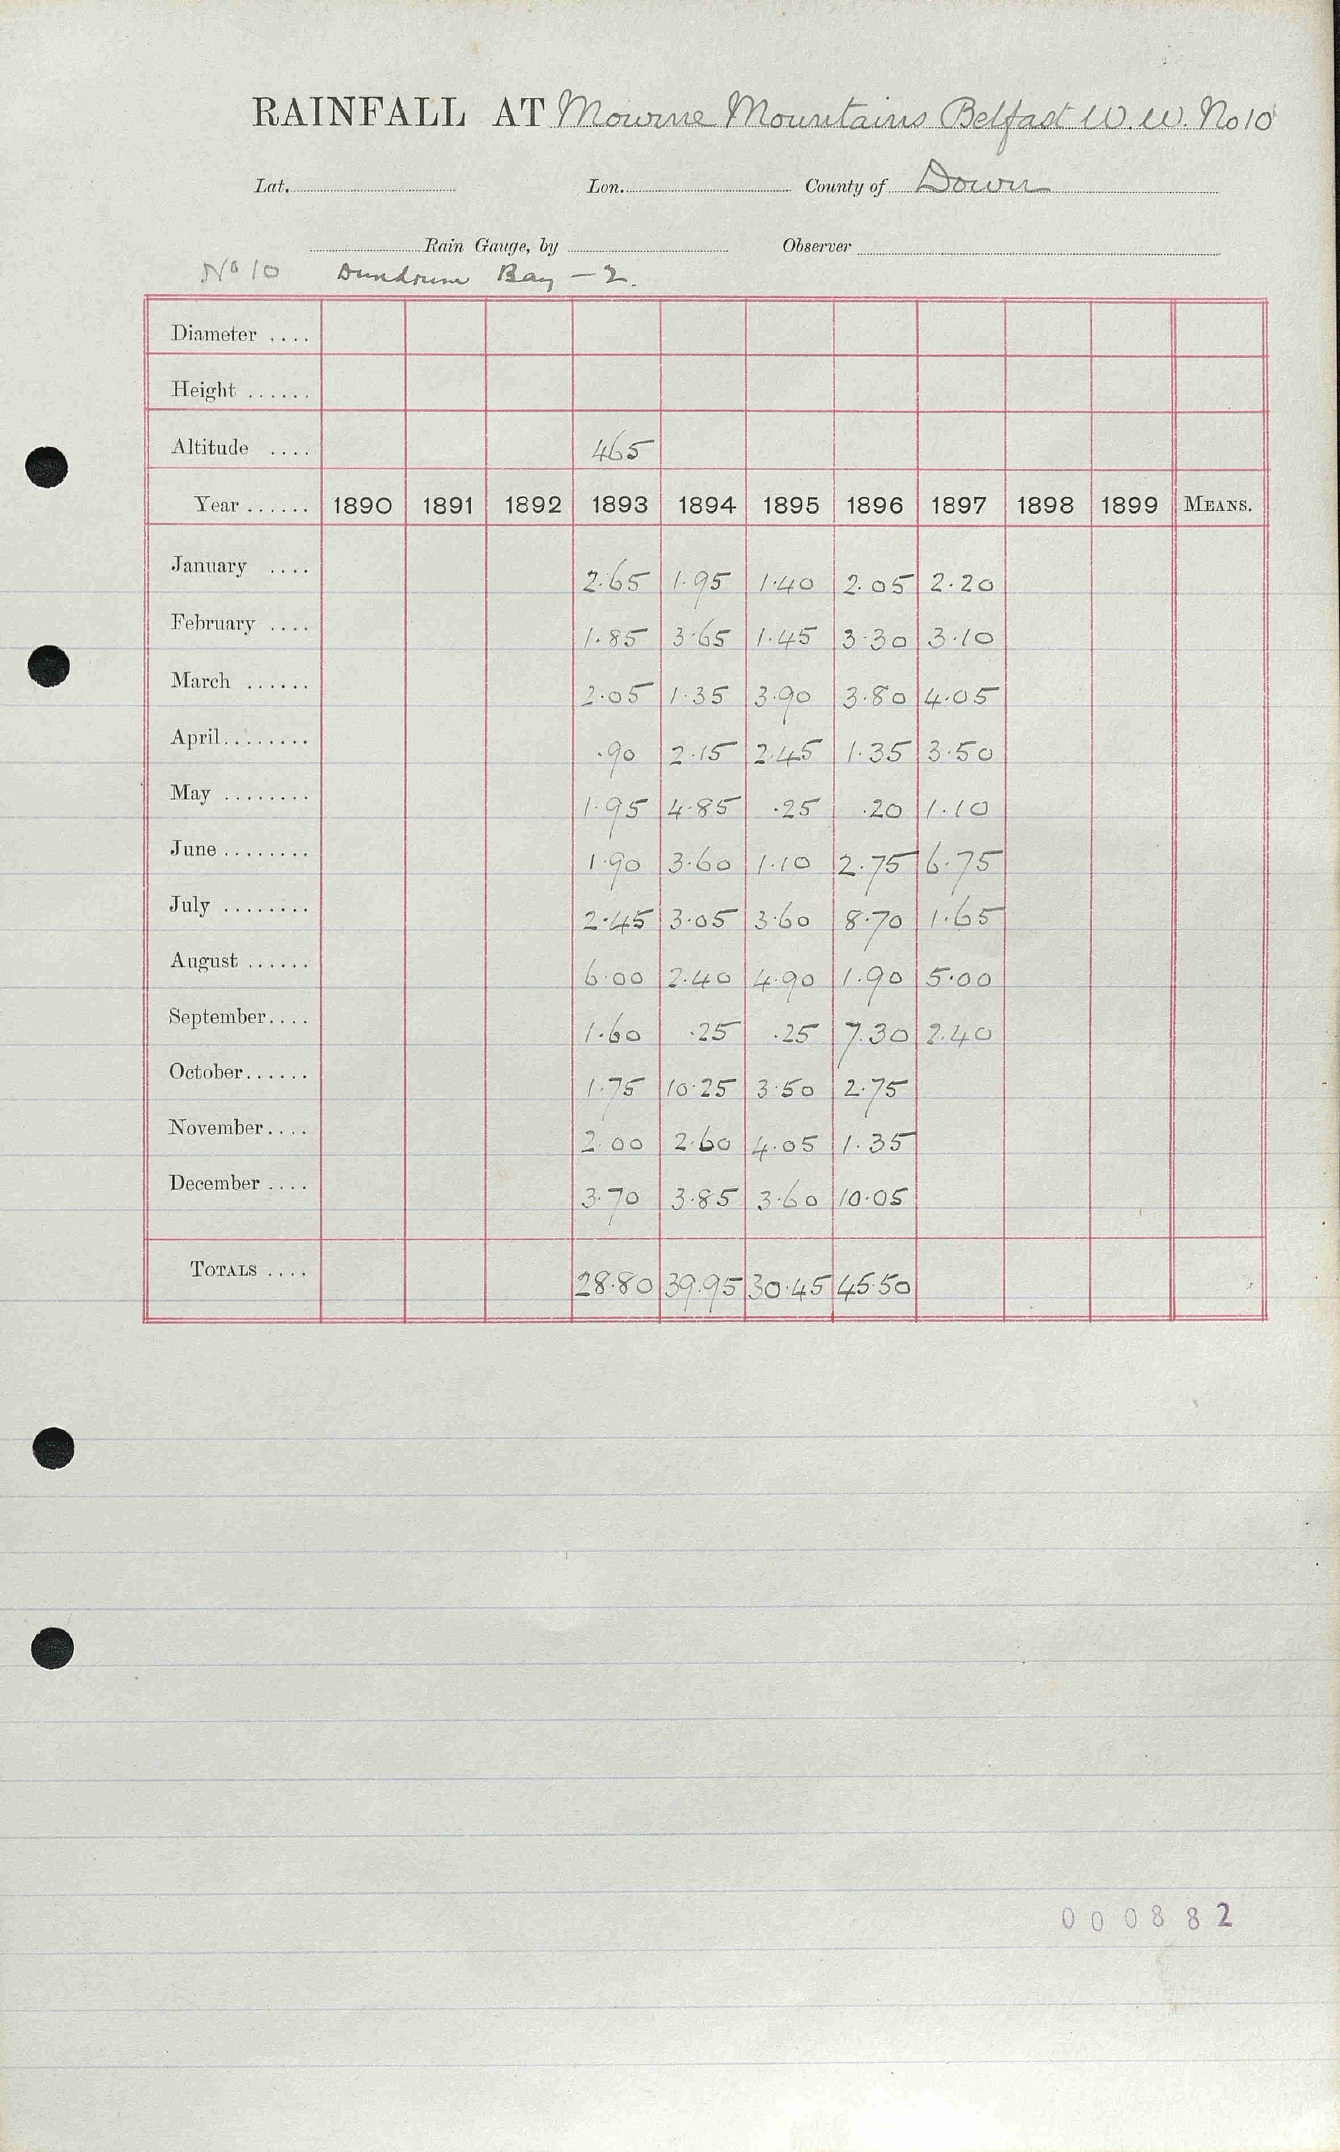 RAINFALL AT Mourne Mountains Belfast W.W. No 10
Lat. Lon. County of Down
Rain Gauge, by Observer
No 10 Dundrum Bay - 2.
Diameter ....
Height ......
Altitude .... 465
Year ...... 1890 1891 1892 1893 1894 1895 1896 1897 1898 1899 MEANS.
January .... 2.65 1.95 1.40 2.05 2.20
February .... 1.85 3.65 1.45 3.30 3.10
March ...... 2.05 1.35 3.90 3.80 4.05
April........ .90 2.15 2.45 1.35 3.50
May ........ 1.95 4.85 .25 .20 1.10
June ........ 1.90 3.60 1.10 2.75 6.75
July ........ 2.45 3.05 3.60 8.70 1.65
August ...... 6.00 2.40 4.90 1.90 5.00
September.... 1.60 .25 .25 7.30 2.40
October...... 1.75 10.25 3.50 2.75
November.... 2.00 2.60 4.05 1.35
December .... 3.70 3.85 3.60 10.05
TOTALS .... 28.80 39.95 30.45 45.50
000882